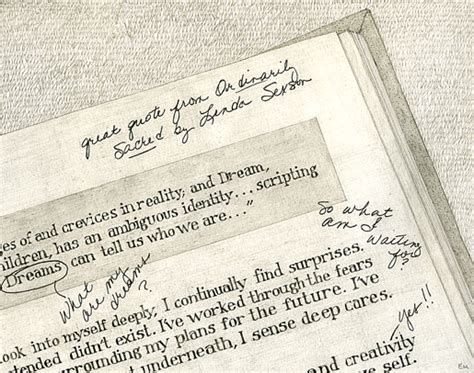 great quote from Ordinarily
Sacred by Linda Sexson
es of and crevices in reality; and Dream,
hildren, has an ambiguous identity... scripting
Dreams can tell us who we are..."
So what
am I
waiting
for?
what
are my
dreams
?
ook into myself deeply, I continually find surprises.
tended didn't exist. I've worked through the fears
rrounding my plans for the future. I've
t underneath, I sense deep cares.
yes!!
and creativity
ve self.